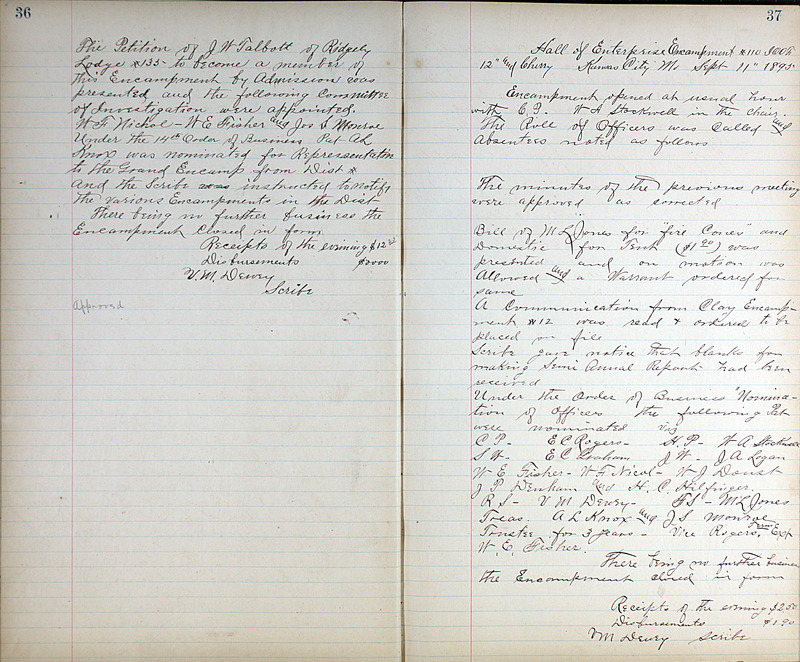 36
The Petition of J W Talbott of Ridgely
Lodge #135 to become a member of
this Encampment by Admission was
presented and the following Committee
of Investigation were appointed.
W F Nichol - W E Fisher and Jos S Monroe
Under the 14th Order of Business Pat A L
Knox was nominated for Representative
to the Grand Encamp. from Dist #
and the Scribe was instructed to notify
the various Encampments in the Dist
There being no further business the
Encampment closed in form
Receipts of the evening $12
Disbursements $0000
V. M. Dewey
Scribe
Approved
37
Hall of Enterprise Encampment #110 IOOF
12th and Cherry Kansas City Mo Sept 11th 1895
Encampment opened at usual hour
with C.P. W A Stockwell in the chair.
The Roll of Officers was called and
Absentees noted as follows
The minutes of the previous meeting
were approved as
Bill of M L Jones for "fire Cones" and
Domestic for Tent ($1.90) was
presented and on motion was
Allowed and a Warrant ordered for
same
A Communication from Clay Encamp-
ment #12 was read & ordered to be
placed on file
Scribe gave notice that blanks for
making Semi Annual Reports had been
received
Under the Order of Business "Nomina-
tion of Officers the following Pat
were nominated viz
C P - E C Rogers - H. P - W A Stockwell
S W - E C J W - J A Logan
W E Fisher - W F Nicol - W J Doust
J P Denham and H. C. Hilfinger.
R S - V M Dewey - F S - M L Jones
Treas. A L Knox and J S Monroe
Trustee for 3 years - Vice Rogers, Term Exp
W. E. Fisher.
There being no further business
the Encampment closed in form
Receipts of the evening $2.50
Disbursements $1.90
V M Dewey Scribe